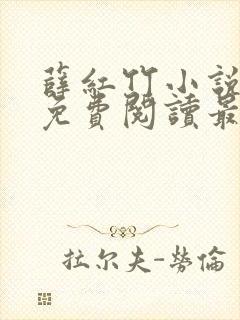 薛紅竹小說
免費閱讀最
拉尔夫-勞倫